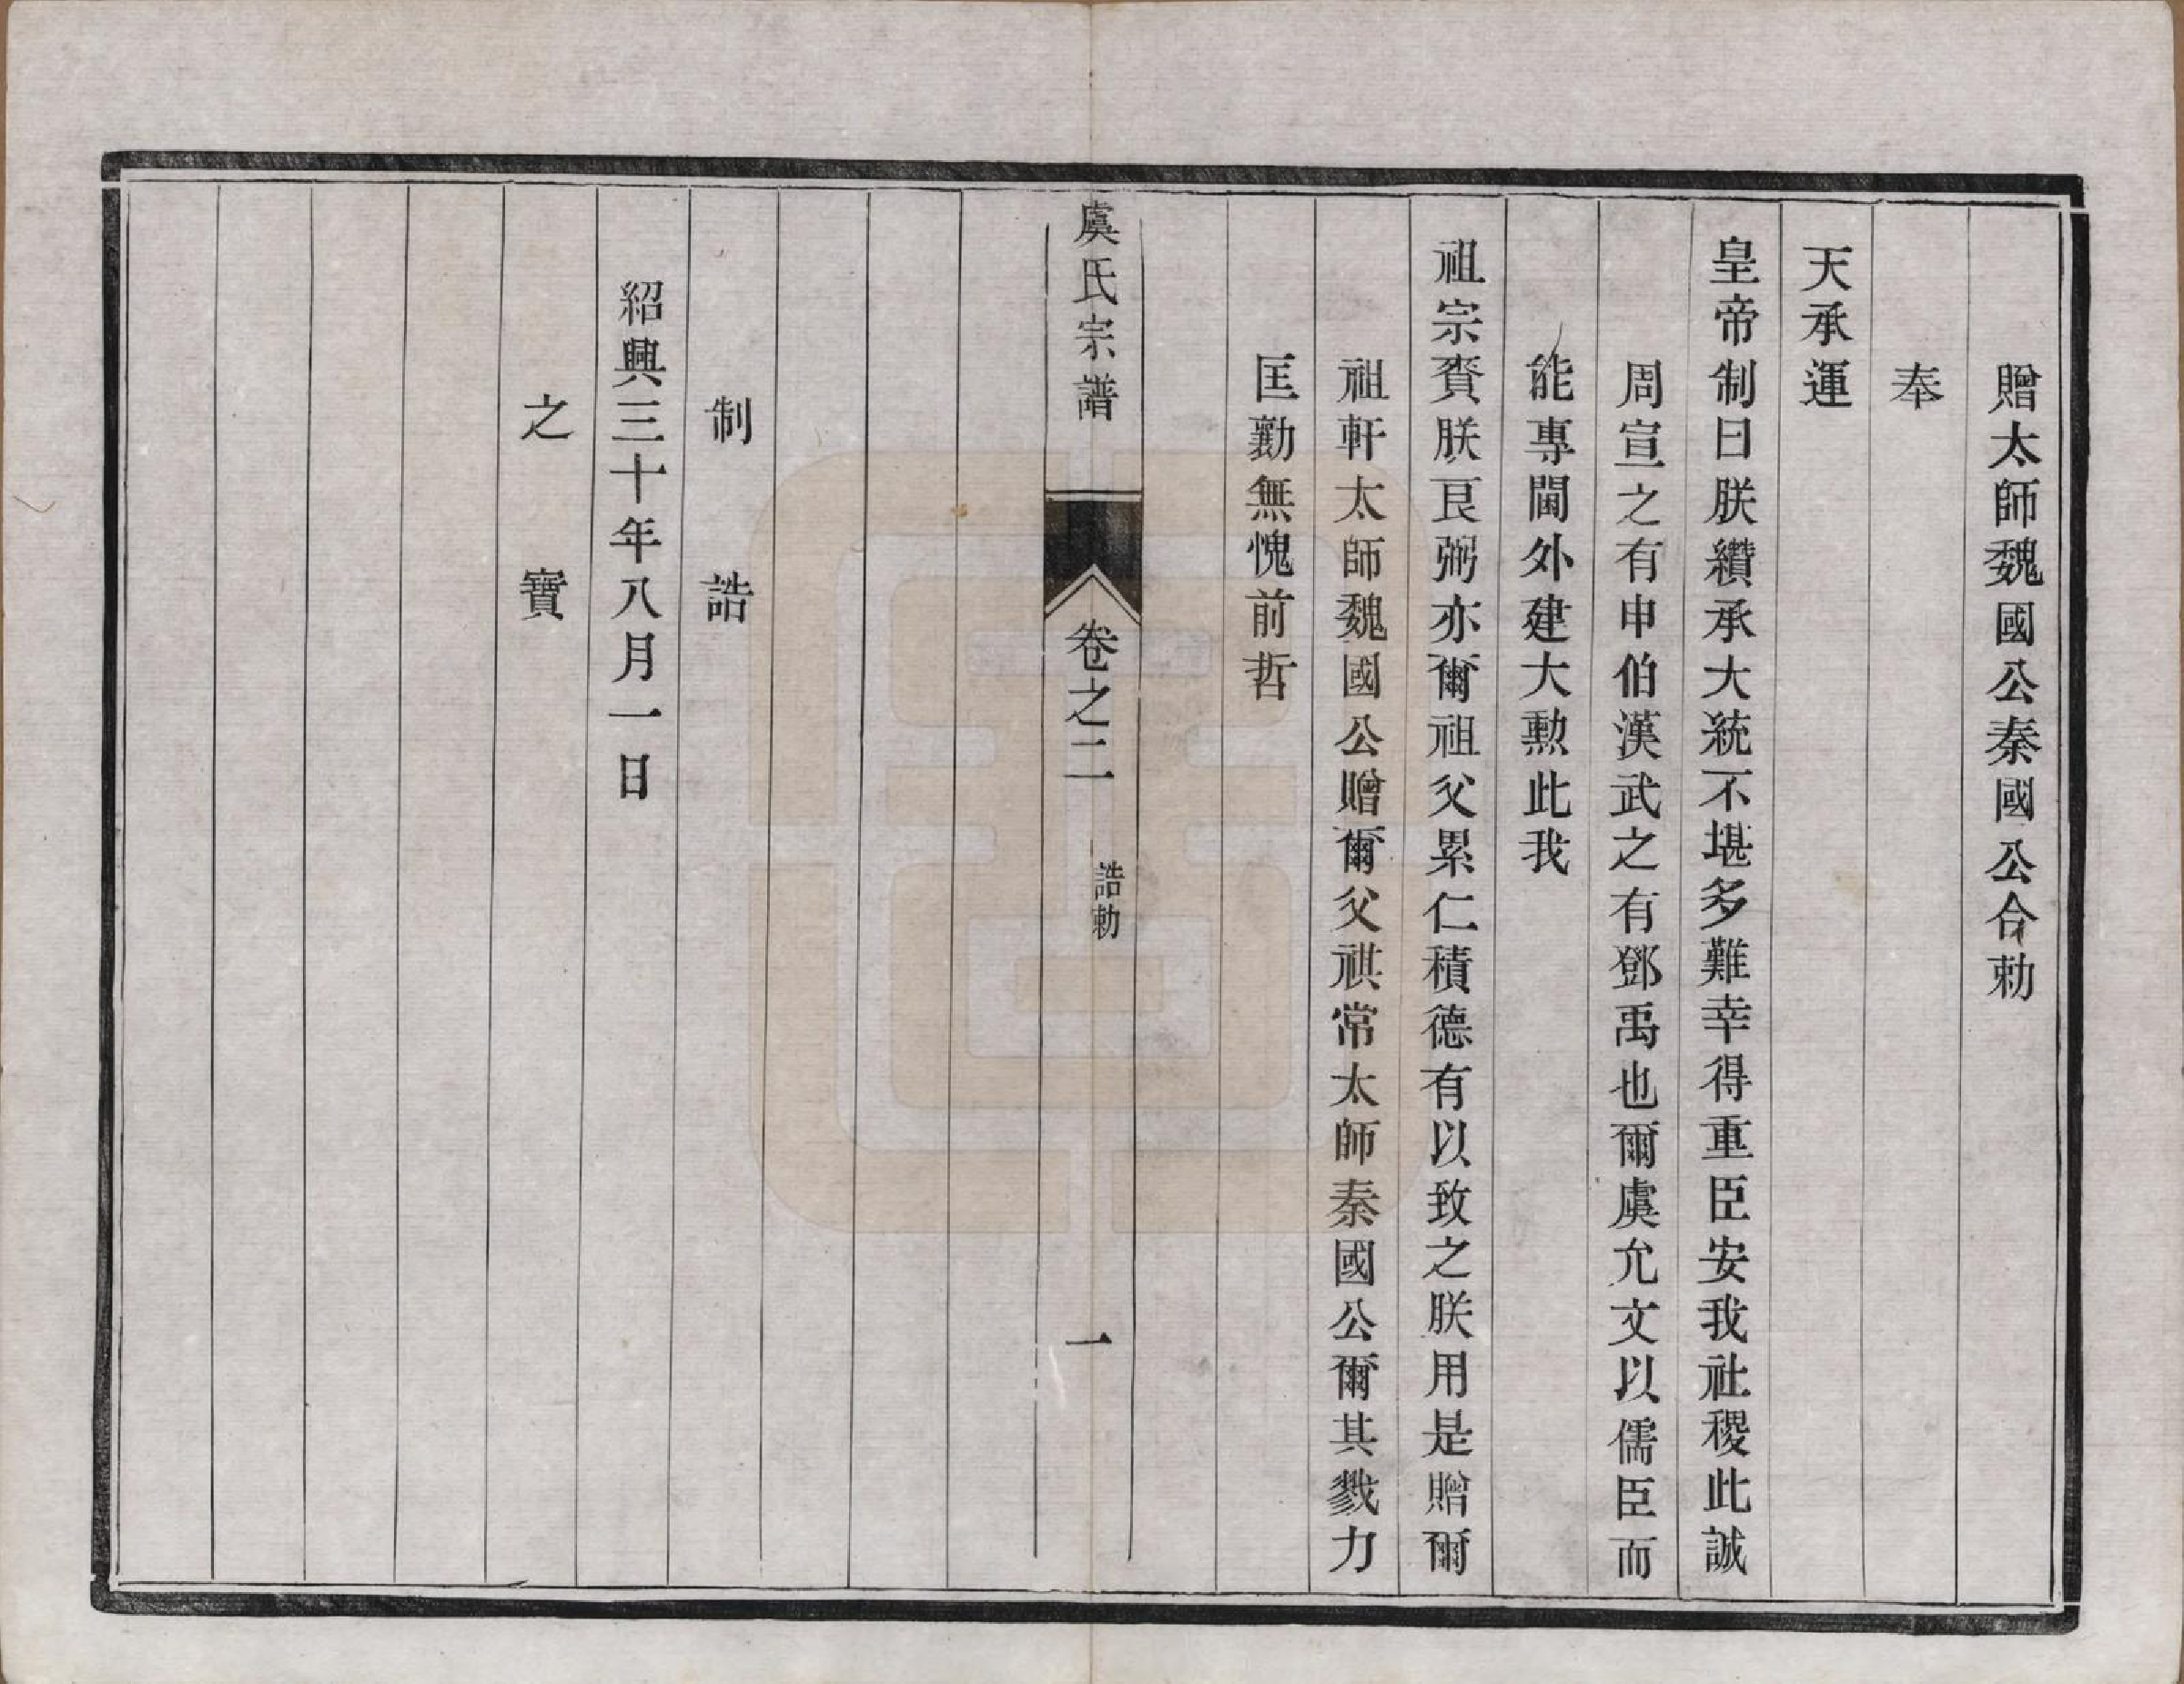 贈太師魏國公秦國公合勅
奉
天承運
皇帝制曰朕纘承大統不堪多難幸得重臣安我社稷此誠
周宣之有申伯漢武之有鄧禹也爾虞允文以儒臣而
能專閫外建大勲此我
祖宗賚朕良弼亦爾祖父累仁積德有以致之朕用是贈爾
祖軒太師魏國公贈爾父祺常太師秦國公爾其戮力
匡勷無愧前哲
虞氏宗譜
卷之二
誥勅
一
制誥
紹興三十年八月一日
之寶